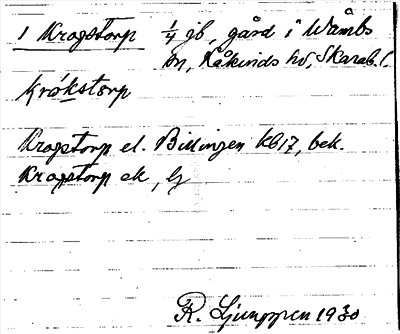 1 Krogstorp 1/4 jb, gård i Wåmbs
sn, Kåkinds hd, Skarab. l.
krókstorp
Krogstorp el. Billingen KB17, bek.
Krogstorp ek, lj
R. Ljunggren 1930